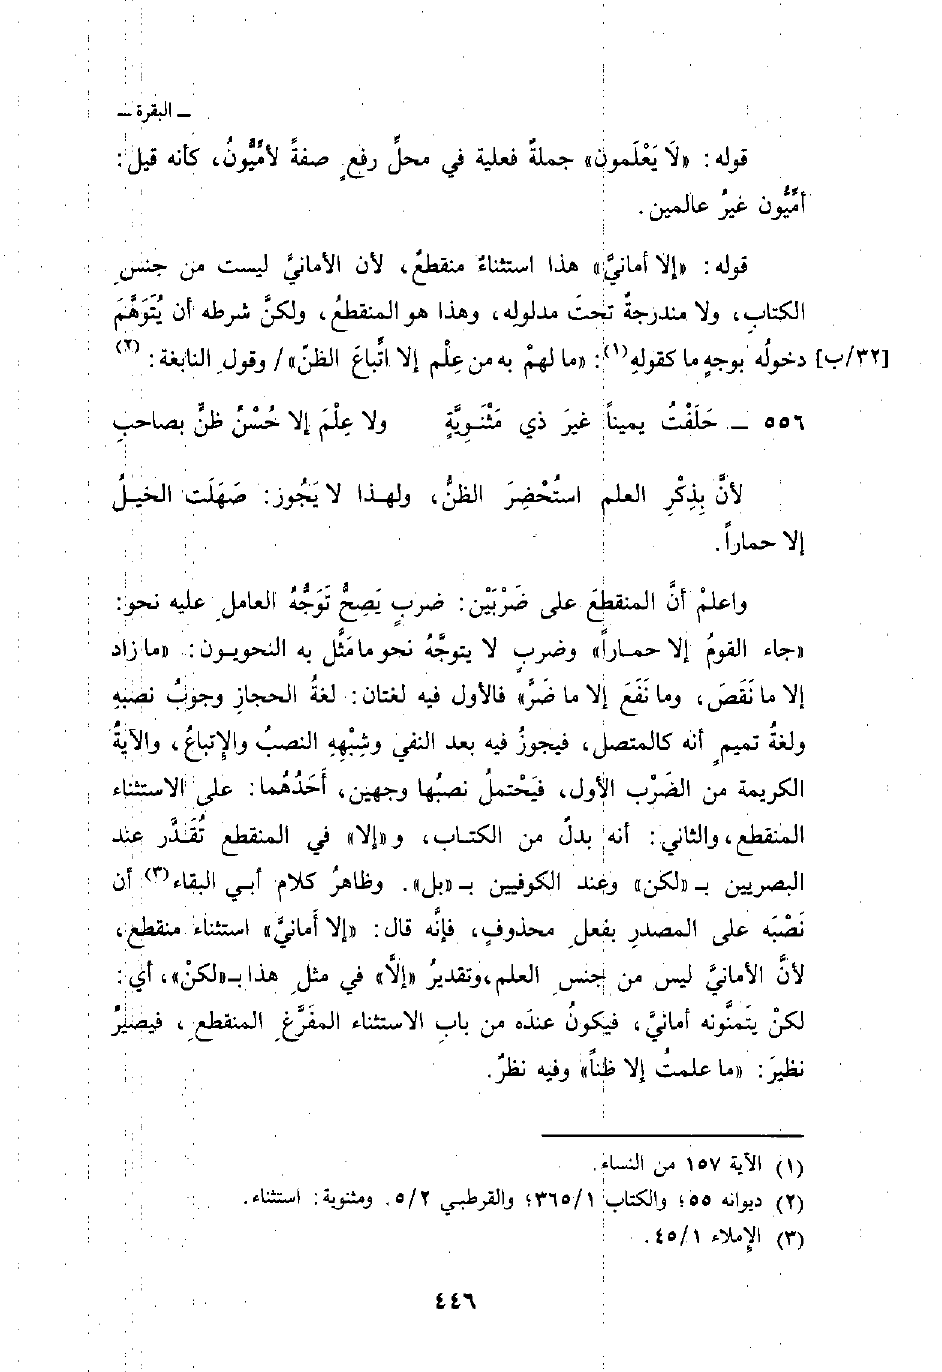 ـ البقرة ـ
قوله: «لَا يَعْلَمون» جملةٌ فعلية في محلِّ رفعٍ صفةً لأمِّيُّونُ، كأنه قيل:
أمِّيُّون غيرُ عالمين.
قوله: «إلا أمانيَّ» هذا استثناءٌ منقطعٌ، لأن الأمانيَّ ليست من جنسِ
الكتابِ، ولا مندرجةٌ تحتَ مدلولِه، وهذا هو المنقطعُ، ولكنَّ شرطه أن يُتَوَهَّمَ
[٣٢/ب] دخولُه بوجهٍ ما كقولِهِ(١): «ما لهمْ به من عِلْم إلا اتِّباعَ الظنِّ»/ وقولِ النابغة:(٢)
٥٥٦ ـ حَلَفْتُ يميناً غيرَ ذي مَثْنَوِيَّةٍ ولا عِلْمَ إلا حُسْنُ ظنٍّ بصاحبِ
لأنَّ بِذِكْرِ العلم استُحْضِرَ الظنُّ، ولهذا لا يَجُوز: صَهَلَت الخيلُ
إلا حماراً.
واعلمْ أنَّ المنقطعَ على ضَرْبَيْن: ضربٍ يَصِحُّ تَوَجُّهُ العاملِ عليه نحو:
«جاء القومُ إلا حماراً» وضربٍ لا يتوجَّهُ نحو ما مَثَّل به النحويون: «ما زاد
إلا ما نَقَصَ، وما نَفَعَ إلا ما ضَرَّ» فالأول فيه لغتان: لغةُ الحجازِ وجوبُ نصبِهِ
ولغةُ تميمٍ أنه كالمتصل، فيجوزُ فيه بعد النفي وشِبْهِهِ النصبُ والإِتباعُ، والآيةُ
الكريمة من الضَرْب الأول، فيَحْتملُ نصبُها وجهين، أَحَدُهُما: على الاستثناء
المنقطع، والثاني: أنه بدلٌ من الكتاب، و«إلا» في المنقطع تُقَدَّر عند
البصريين بـ «لكن» وعند الكوفيين بـ «بل». وظاهرُ كلام أبي البقاء(٣) أن
نَصْبَه على المصدرِ بفعلٍ محذوفٍ، فإنَّه قال: «إلا أَمانيَّ» استثناء منقطع،
لأنَّ الأمانيَّ ليس من جنسِ العلم، وتقديرُ «إلَّا» في مثلِ هذا بـ«لكنْ»، أي:
لكنْ يتمنَّونه أمانيَّ، فيكونُ عندَه من بابِ الاستثناء المفَرَّغِ المنقطعِ، فيصيرُ
نظيرَ: «ما علمتُ إلا ظناً» وفيه نظرٌ.
(١) الآية ١٥٧ من النساء.
(٢) ديوانه ٥٥؛ والكتاب ٣٦٥/١؛ والقرطبي ٥/٢. ومثنوية: استثناء.
(٣) الإملاء ٤٥/١.
٤٤٦